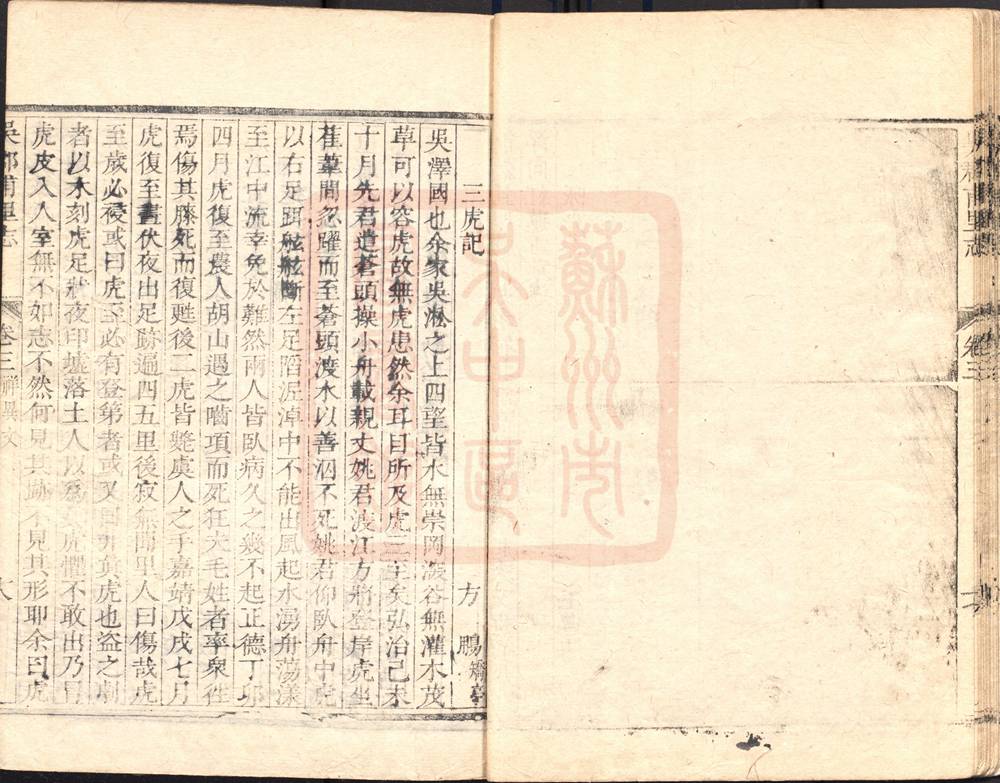 甫里志
卷三
三虎記
方鵬矯亭
吳澤國也余家吳淞之上四望皆水無崇岡深谷無灌木茂
草可以容虎故無虎患然余耳目所及虎三至矣弘治己未
十月先君遣蒼頭操小舟載親丈姚君渡江方將登岸虎坐
萑葦間忽躍而至蒼頭渡水以善泅不死姚君仰臥舟中虎
以右足跙舷舷斷左足陷泥淖中不能出風起水湧舟蕩漾
至江中流幸免於難然兩人皆臥病久之幾不起正德丁卯
四月虎復至農人胡山遇之嚙項而死狂夫毛姓者率眾往
焉傷其膝死而復甦後二虎皆斃虞人之手嘉靖戊戌七月
虎復至晝伏夜出足跡遍四五里後寂無聞里人曰傷哉虎
至歲必祲或曰虎至必有登第者或又曰非真虎也盜之劇
者以木刻虎足狀夜印墟落土人以為虎懼不敢出乃冒
虎皮入人室無不如志不然何見其跡不見其形耶余曰虎
吳郡甫里志
卷三祥異文
蘇州市吳中區